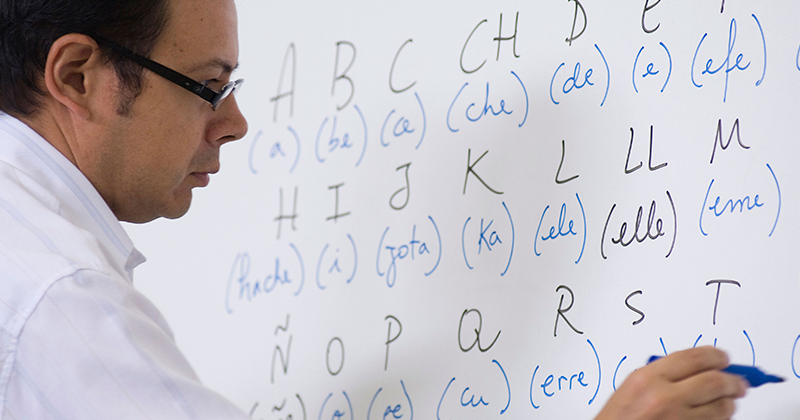 A B C CH D E
(a) (be) (ce) (che) (de) (e) (efe)
H I J K L LL M
(hache) (i) (jota) (Ka) (ele) (elle) (eme)
Ñ O P Q R S T
(cu) (erre)